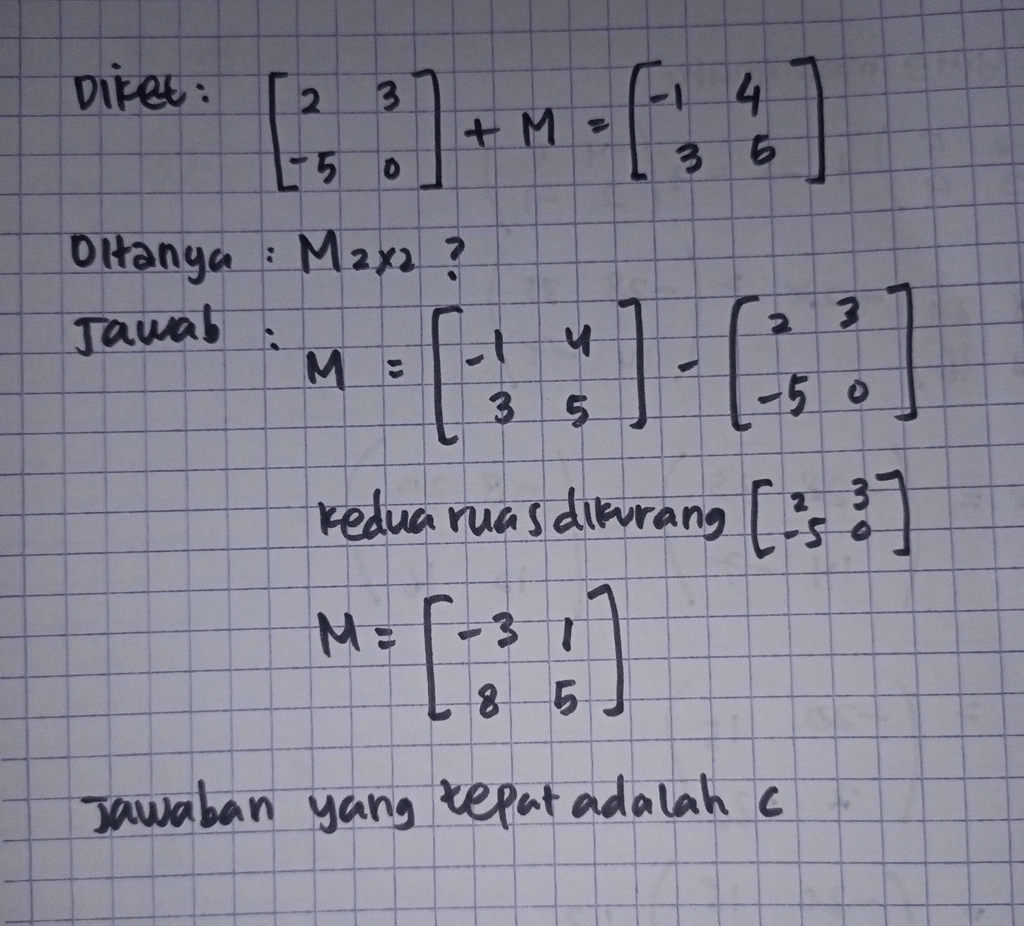 Diket: [2 3 -5 0] + M = [-1 4 3 5]
Ditanya : M2x2 ?
Jawab : M = [-1 4 3 5] - [2 3 -5 0]
kedua ruas dikurang [2 3 -5 0]
M = [-3 1 8 5]
Jawaban yang tepat adalah c